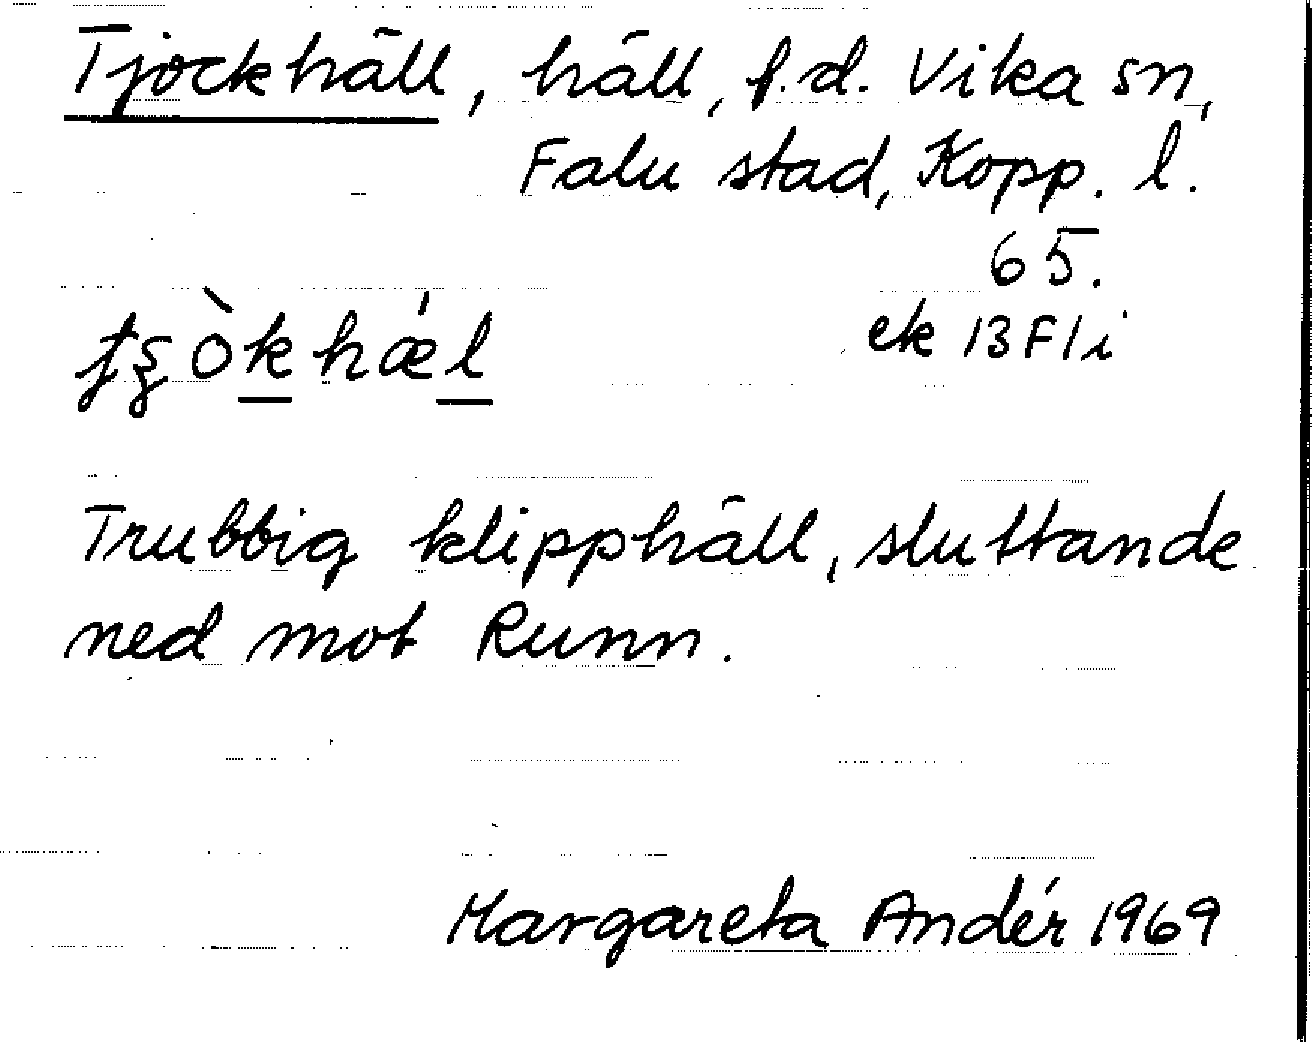 Tjockhäll, häll, f.d. Vika sn,
Falu stad, Kopp. l.
65.
ek 13F1i
Trubbig klipphäll, sluttande
ned mot Runn.
Margareta Andér 1969